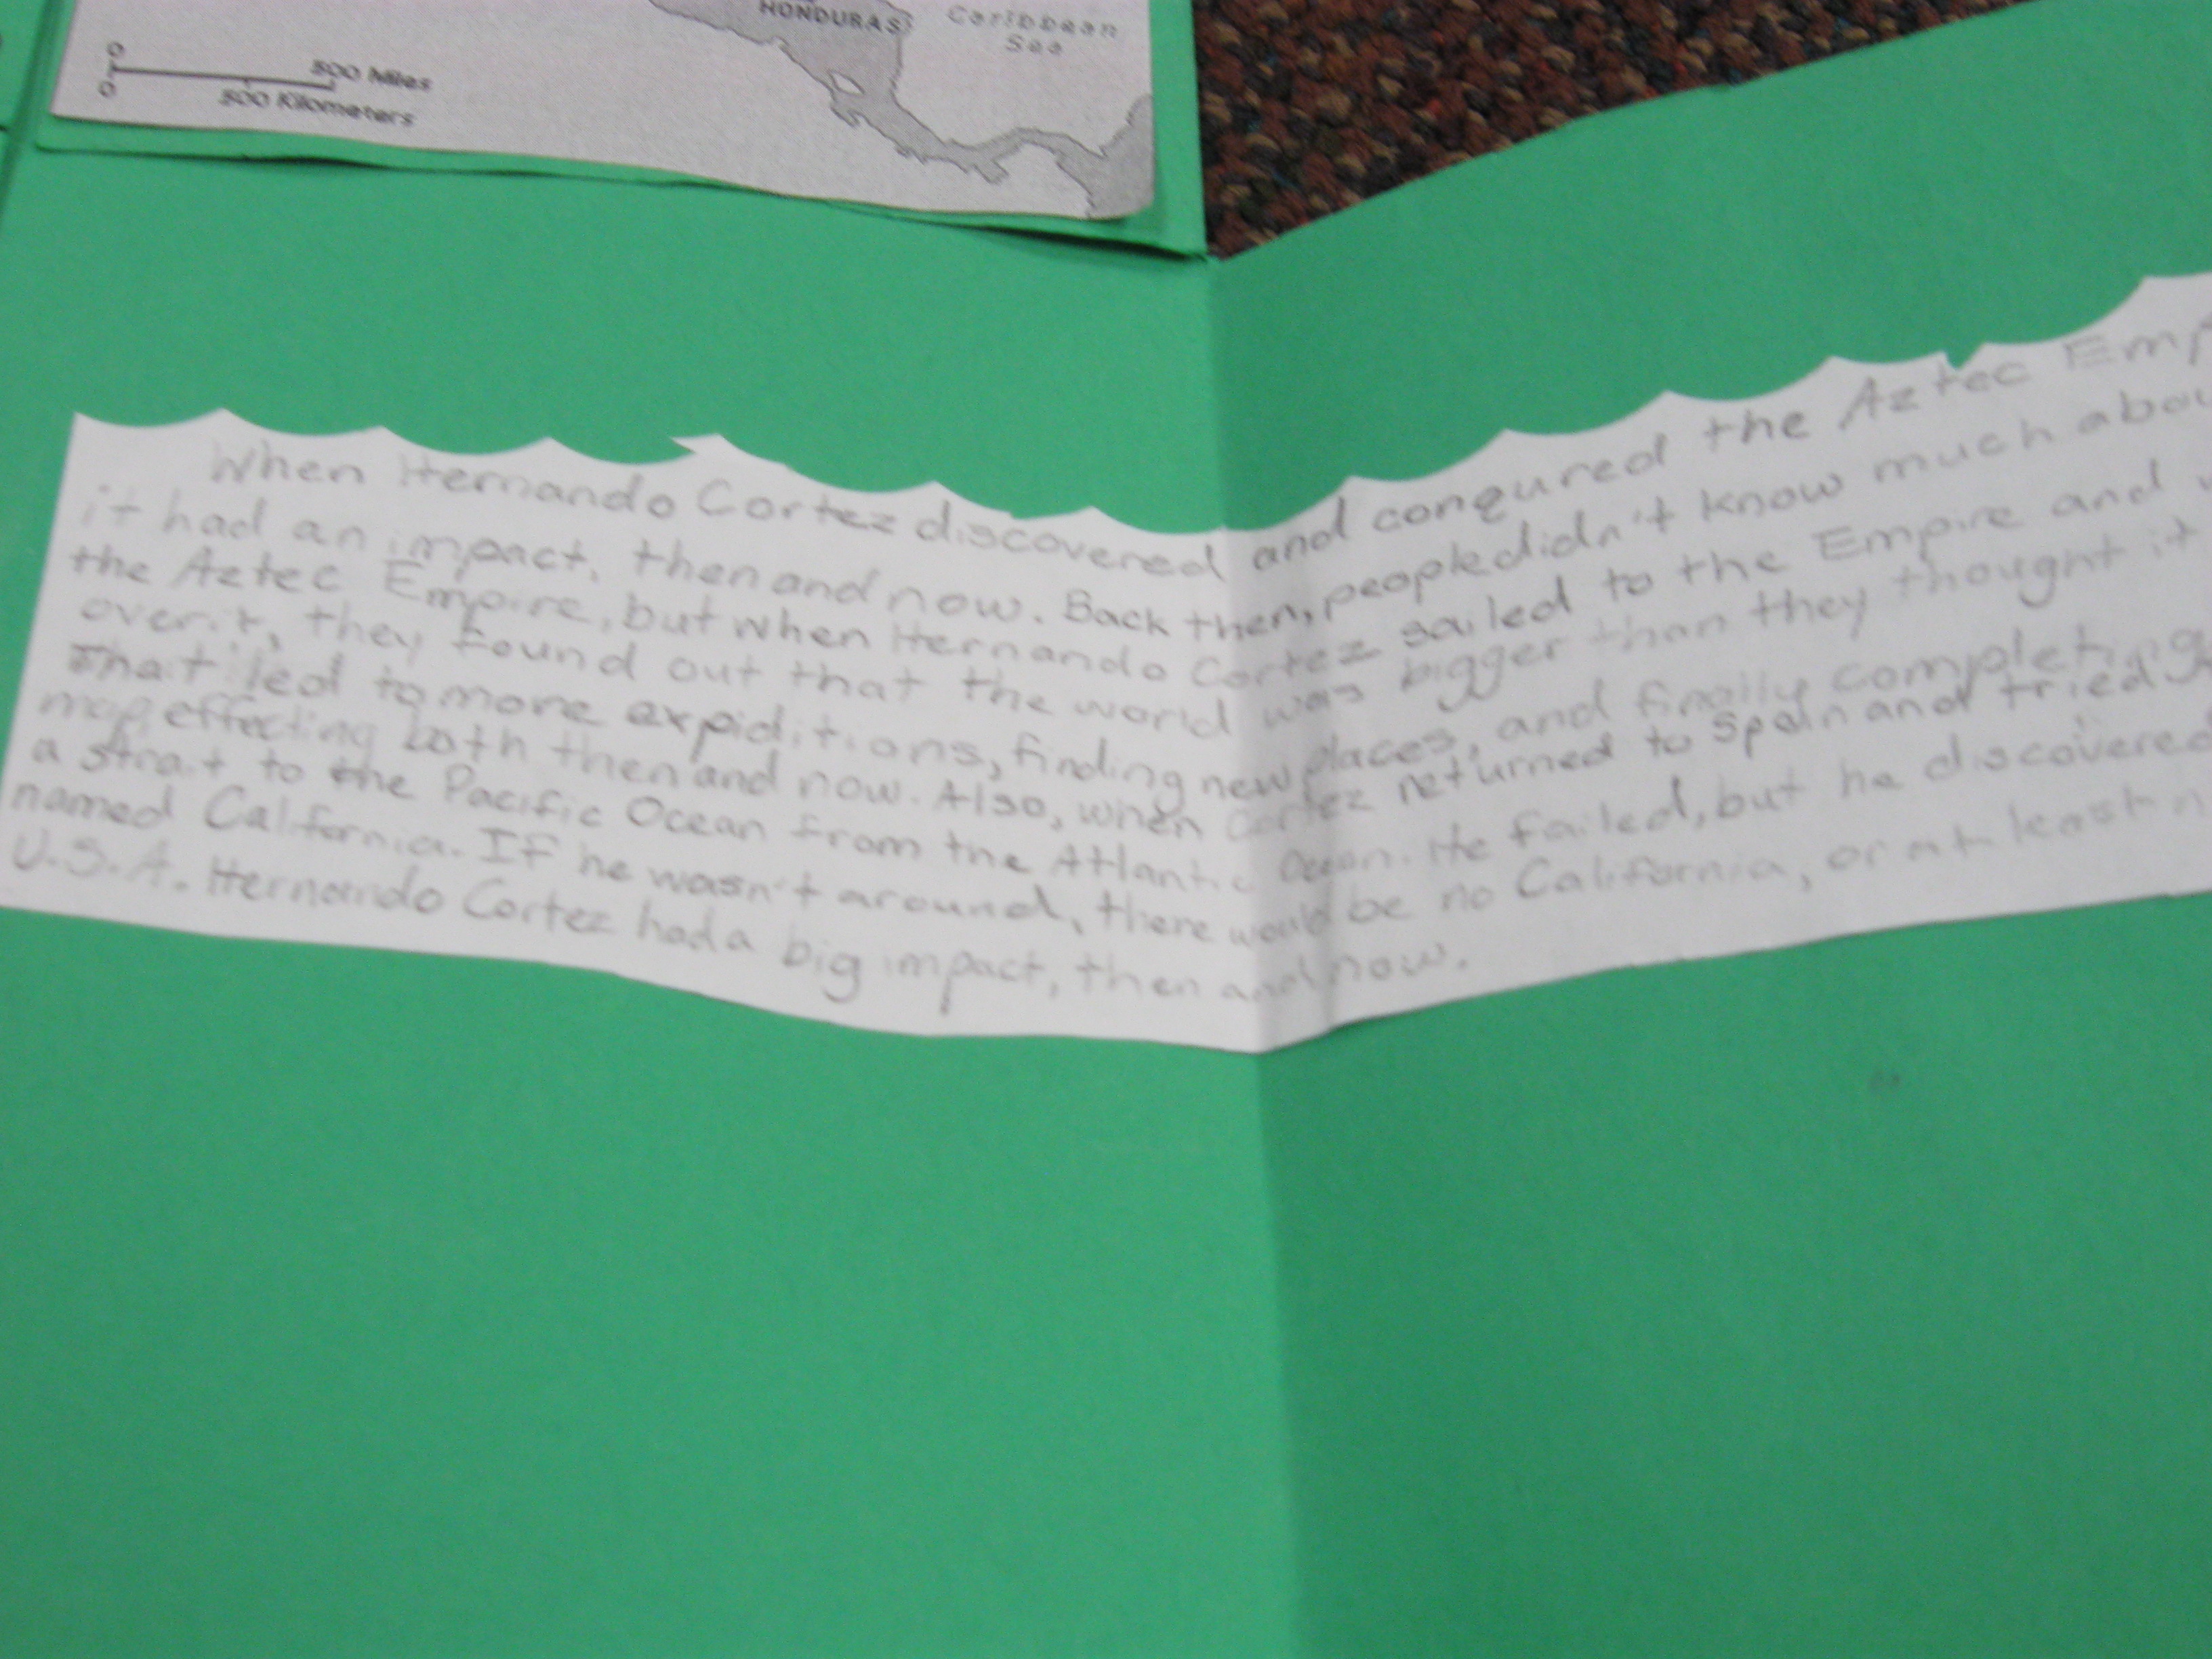 HONDURAS
Caribbean
Sea
0
500 Miles
0
500 Kilometers
When Hernando Cortez discovered and conqured the Aztec Emp
it had an impact, then and now. Back then, people didn't know much abou
the Aztec Empire, but when Hernando Cortez sailed to the Empire and
over it, they found out that the world was bigger than they thought it
That led to more expiditions, finding new places, and finally completing
map, effecting both then and now. Also, when Cortez returned to Spain and tried
a strait to the Pacific Ocean from the Atlantic Ocean. He failed, but he discovered
named California. If he wasn't around, there would be no California, or at least
U.S.A. Hernando Cortez had a big impact, then and now.